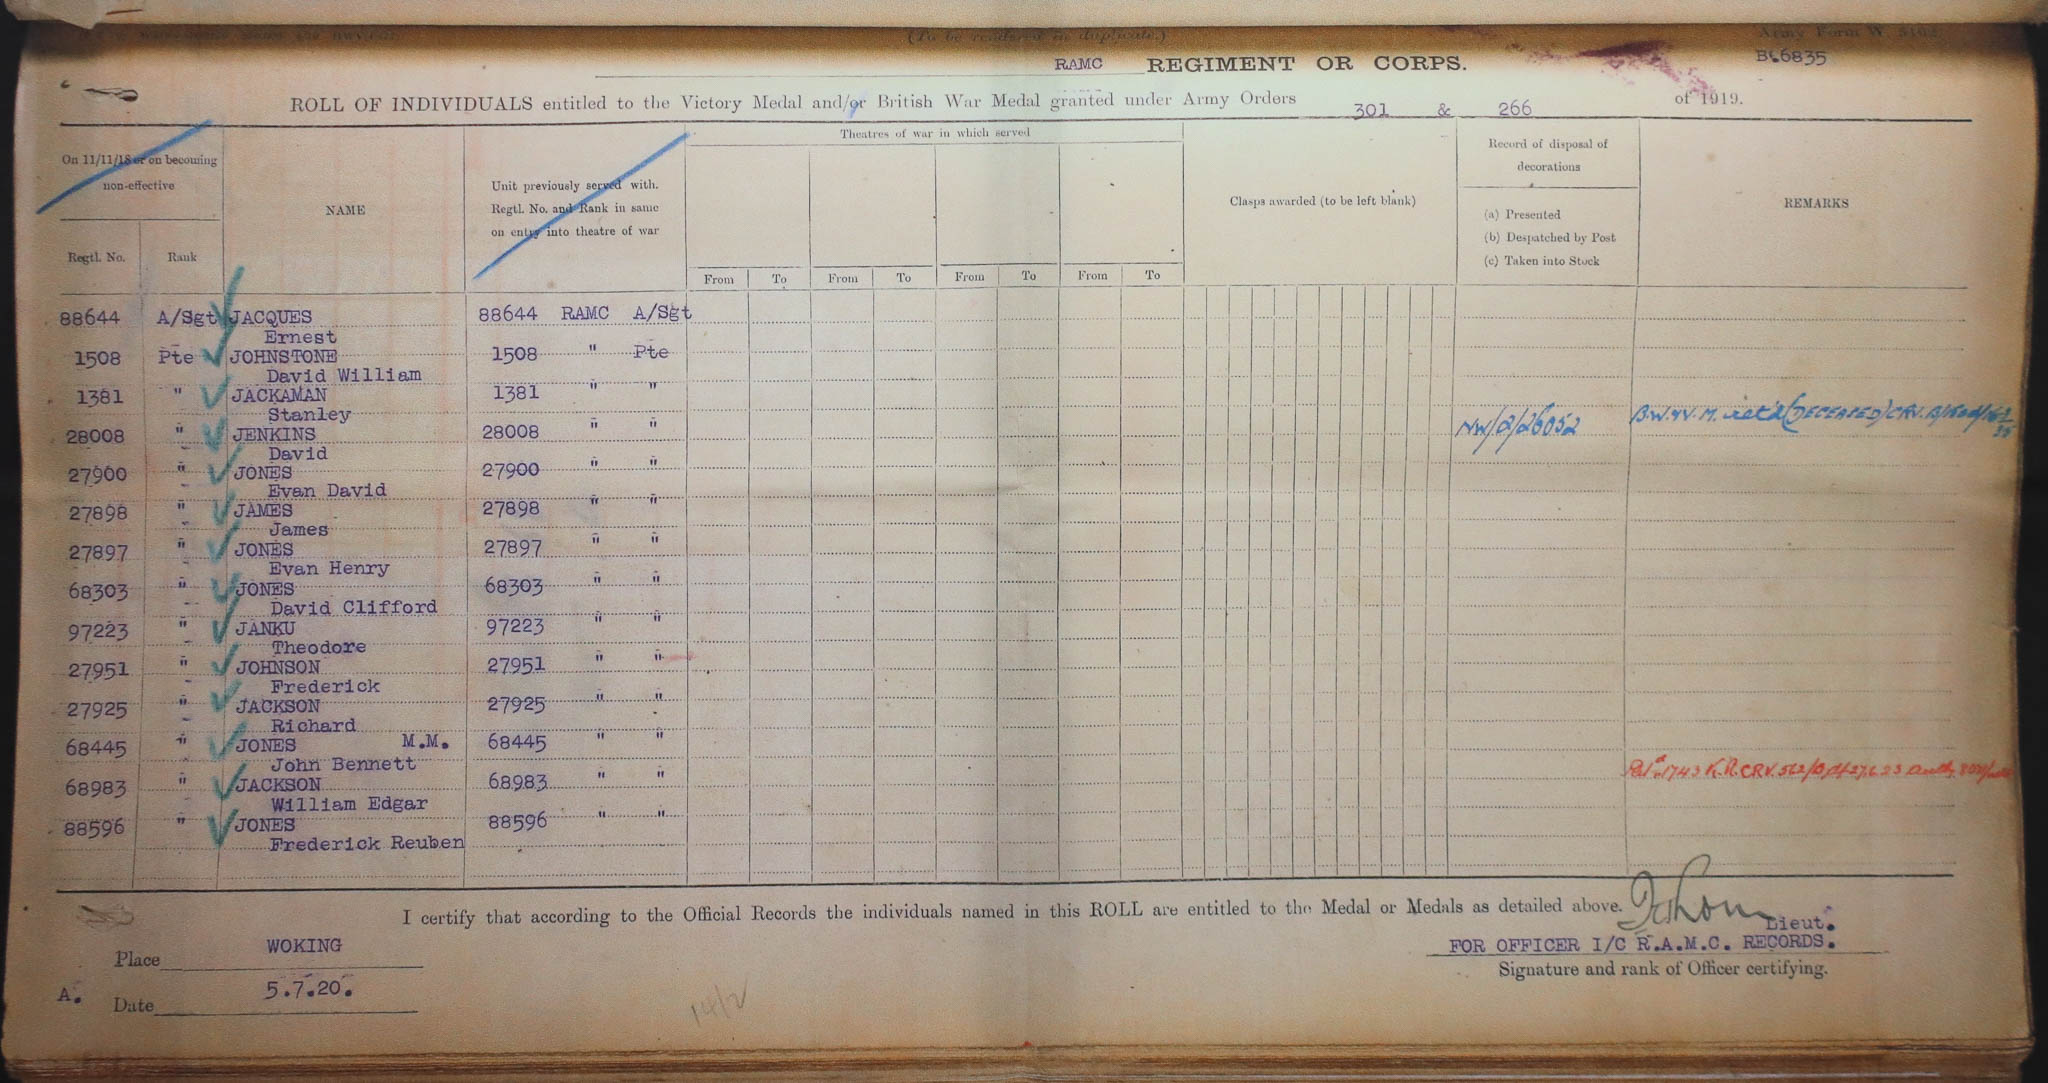 (To be rendered in duplicate.)
Army Form W. 5102
B.6835
RAMC REGIMENT OR CORPS.
ROLL OF INDIVIDUALS entitled to the Victory Medal and/or British War Medal granted under Army Orders 301 & 266 of 1919.
On 11/11/18 or on becoming non-effective
Regtl. No.
Rank
NAME
Unit previously served with. Regtl. No. and Rank in same on entry into theatre of war
Theatres of war in which served
From To From To From To From To
Clasps awarded (to be left blank)
Record of disposal of decorations
(a) Presented
(b) Despatched by Post
(c) Taken into Stock
REMARKS
88644 A/Sgt JACQUES 88644 RAMC A/Sgt
Ernest
1508 Pte JOHNSTONE 1508 " Pte
David William
1381 " JACKAMAN 1381 " "
Stanley
28008 " JENKINS 28008 " " NW/2/26052 B.W. & V.M. ret'd (DECEASED) CRV.
David
27900 " JONES 27900 " "
Evan David
27898 " JAMES 27898 " "
James
27897 " JONES 27897 " "
Evan Henry
68303 " JONES 68303 " "
David Clifford
97223 " JANKU 97223 " "
Theodore
27951 " JOHNSON 27951 " "
Frederick
27925 " JACKSON 27925 " "
Richard
68445 " JONES M.M. 68445 " "
John Bennett
68983 " JACKSON 68983 " " 1743 K.R. CRV. 562/B
William Edgar
88596 " JONES 88596 " "
Frederick Reuben
I certify that according to the Official Records the individuals named in this ROLL are entitled to the Medal or Medals as detailed above.
Lieut.
FOR OFFICER I/C R.A.M.C. RECORDS.
Signature and rank of Officer certifying.
Place WOKING
A. Date 5.7.20.
14/2